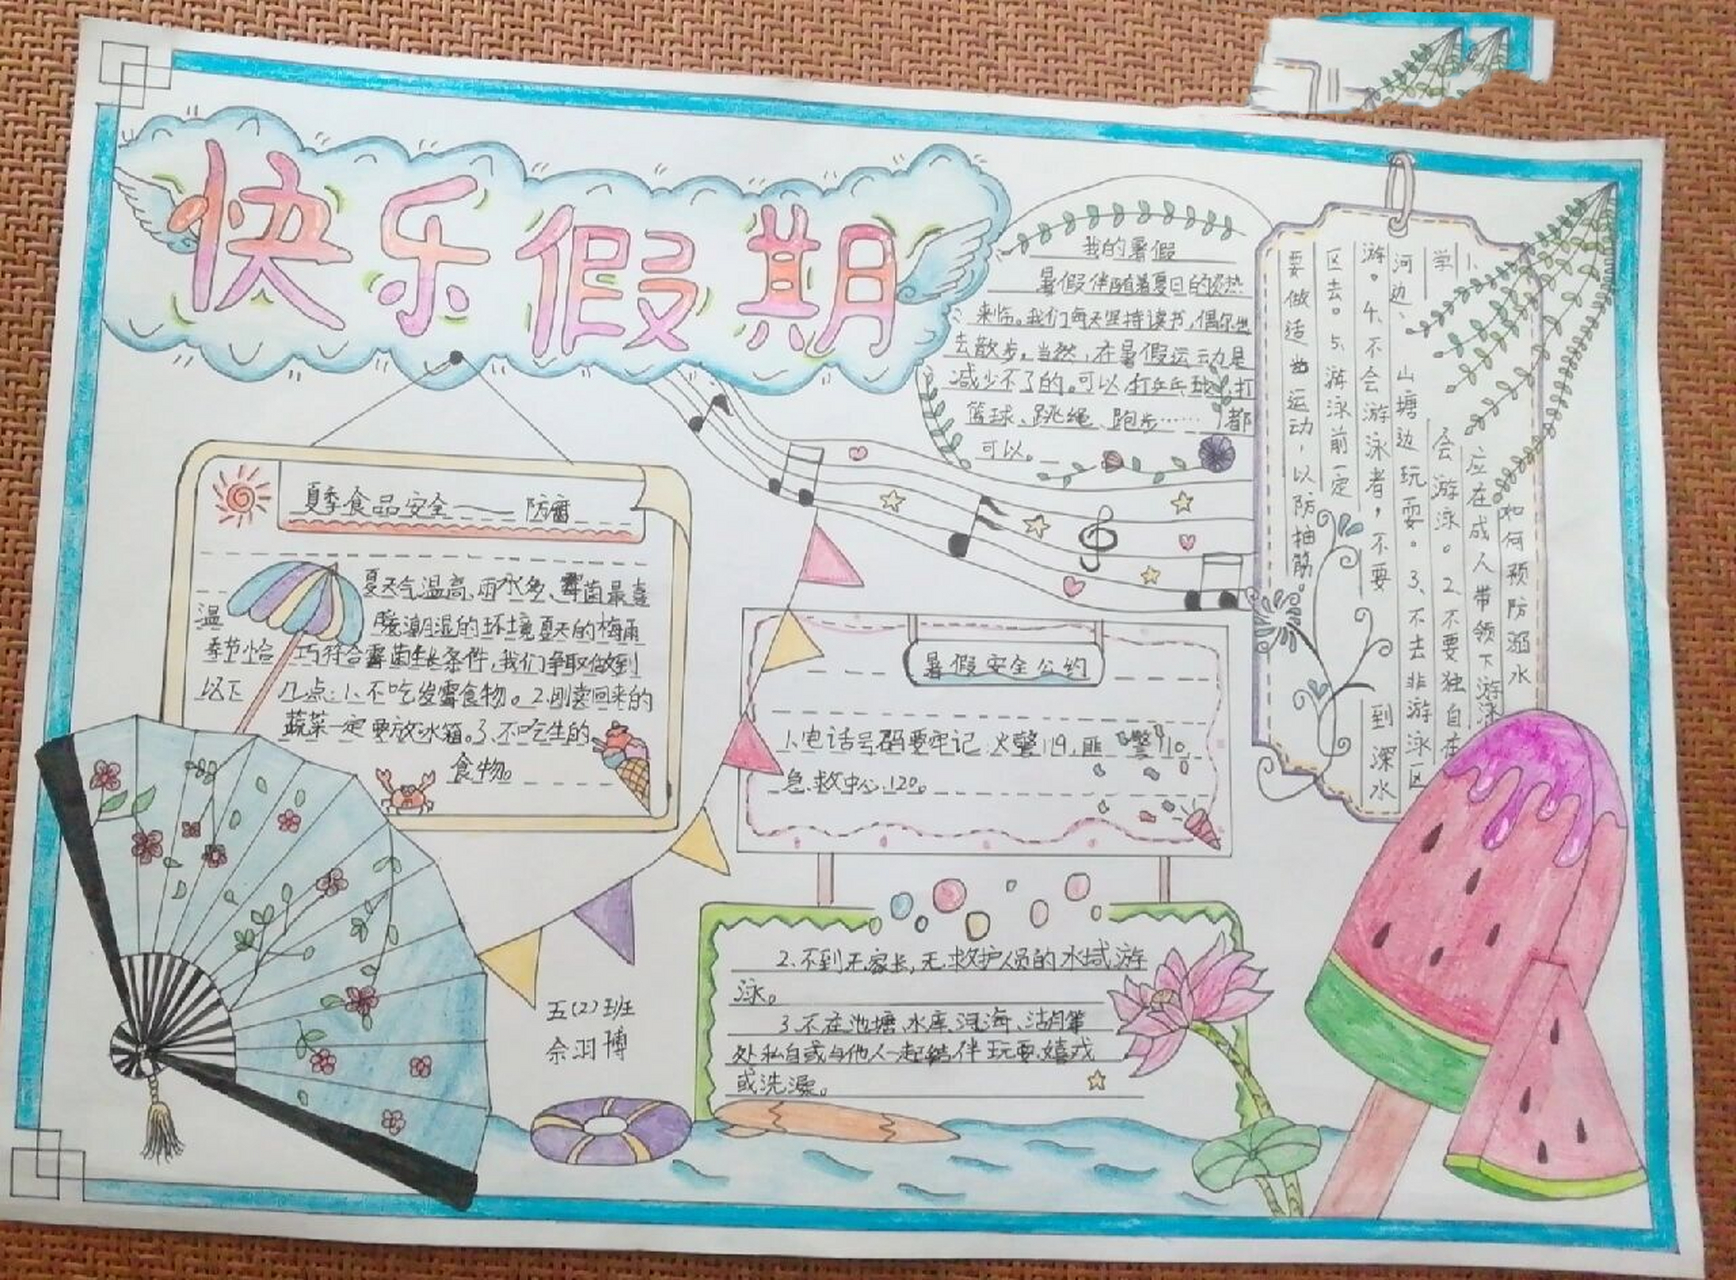 快乐假期
我的暑假
暑假伴随着夏日的炎热
来临。我们每天坚持读书,偶尔也
去散步。当然,在暑假运动是
减少不了的。可以打乒乓球、打
篮球、跳绳、跑步……都
可以。
如何预防溺水
1、应在成人带领下游泳
学会游泳。2、不要独自在
河边、山塘边玩耍。3、不去非游泳区
游。4、不会游泳者,不要到深水
区去。5、游泳前一定
要做适当运动,以防抽筋。
夏季食品安全——防霉
夏天气温高、雨水多、霉菌最喜
温暖潮湿的环境夏天的梅雨
季节恰巧符合霉菌生长条件,我们争取做到
以下几点:1、不吃发霉食物。2、刚卖回来的
蔬菜一定要放冰箱。3、不吃生的
食物。
暑假安全公约
1、电话号码要牢记:火警119,匪警110,
急救中心120。
2、不到无家长,无救护人员的水域游
泳。
3、不在池塘、水库、河海、湖等
处私自或与他人一起结伴玩耍、嬉戏
或洗澡。
五(2)班
佘羽博